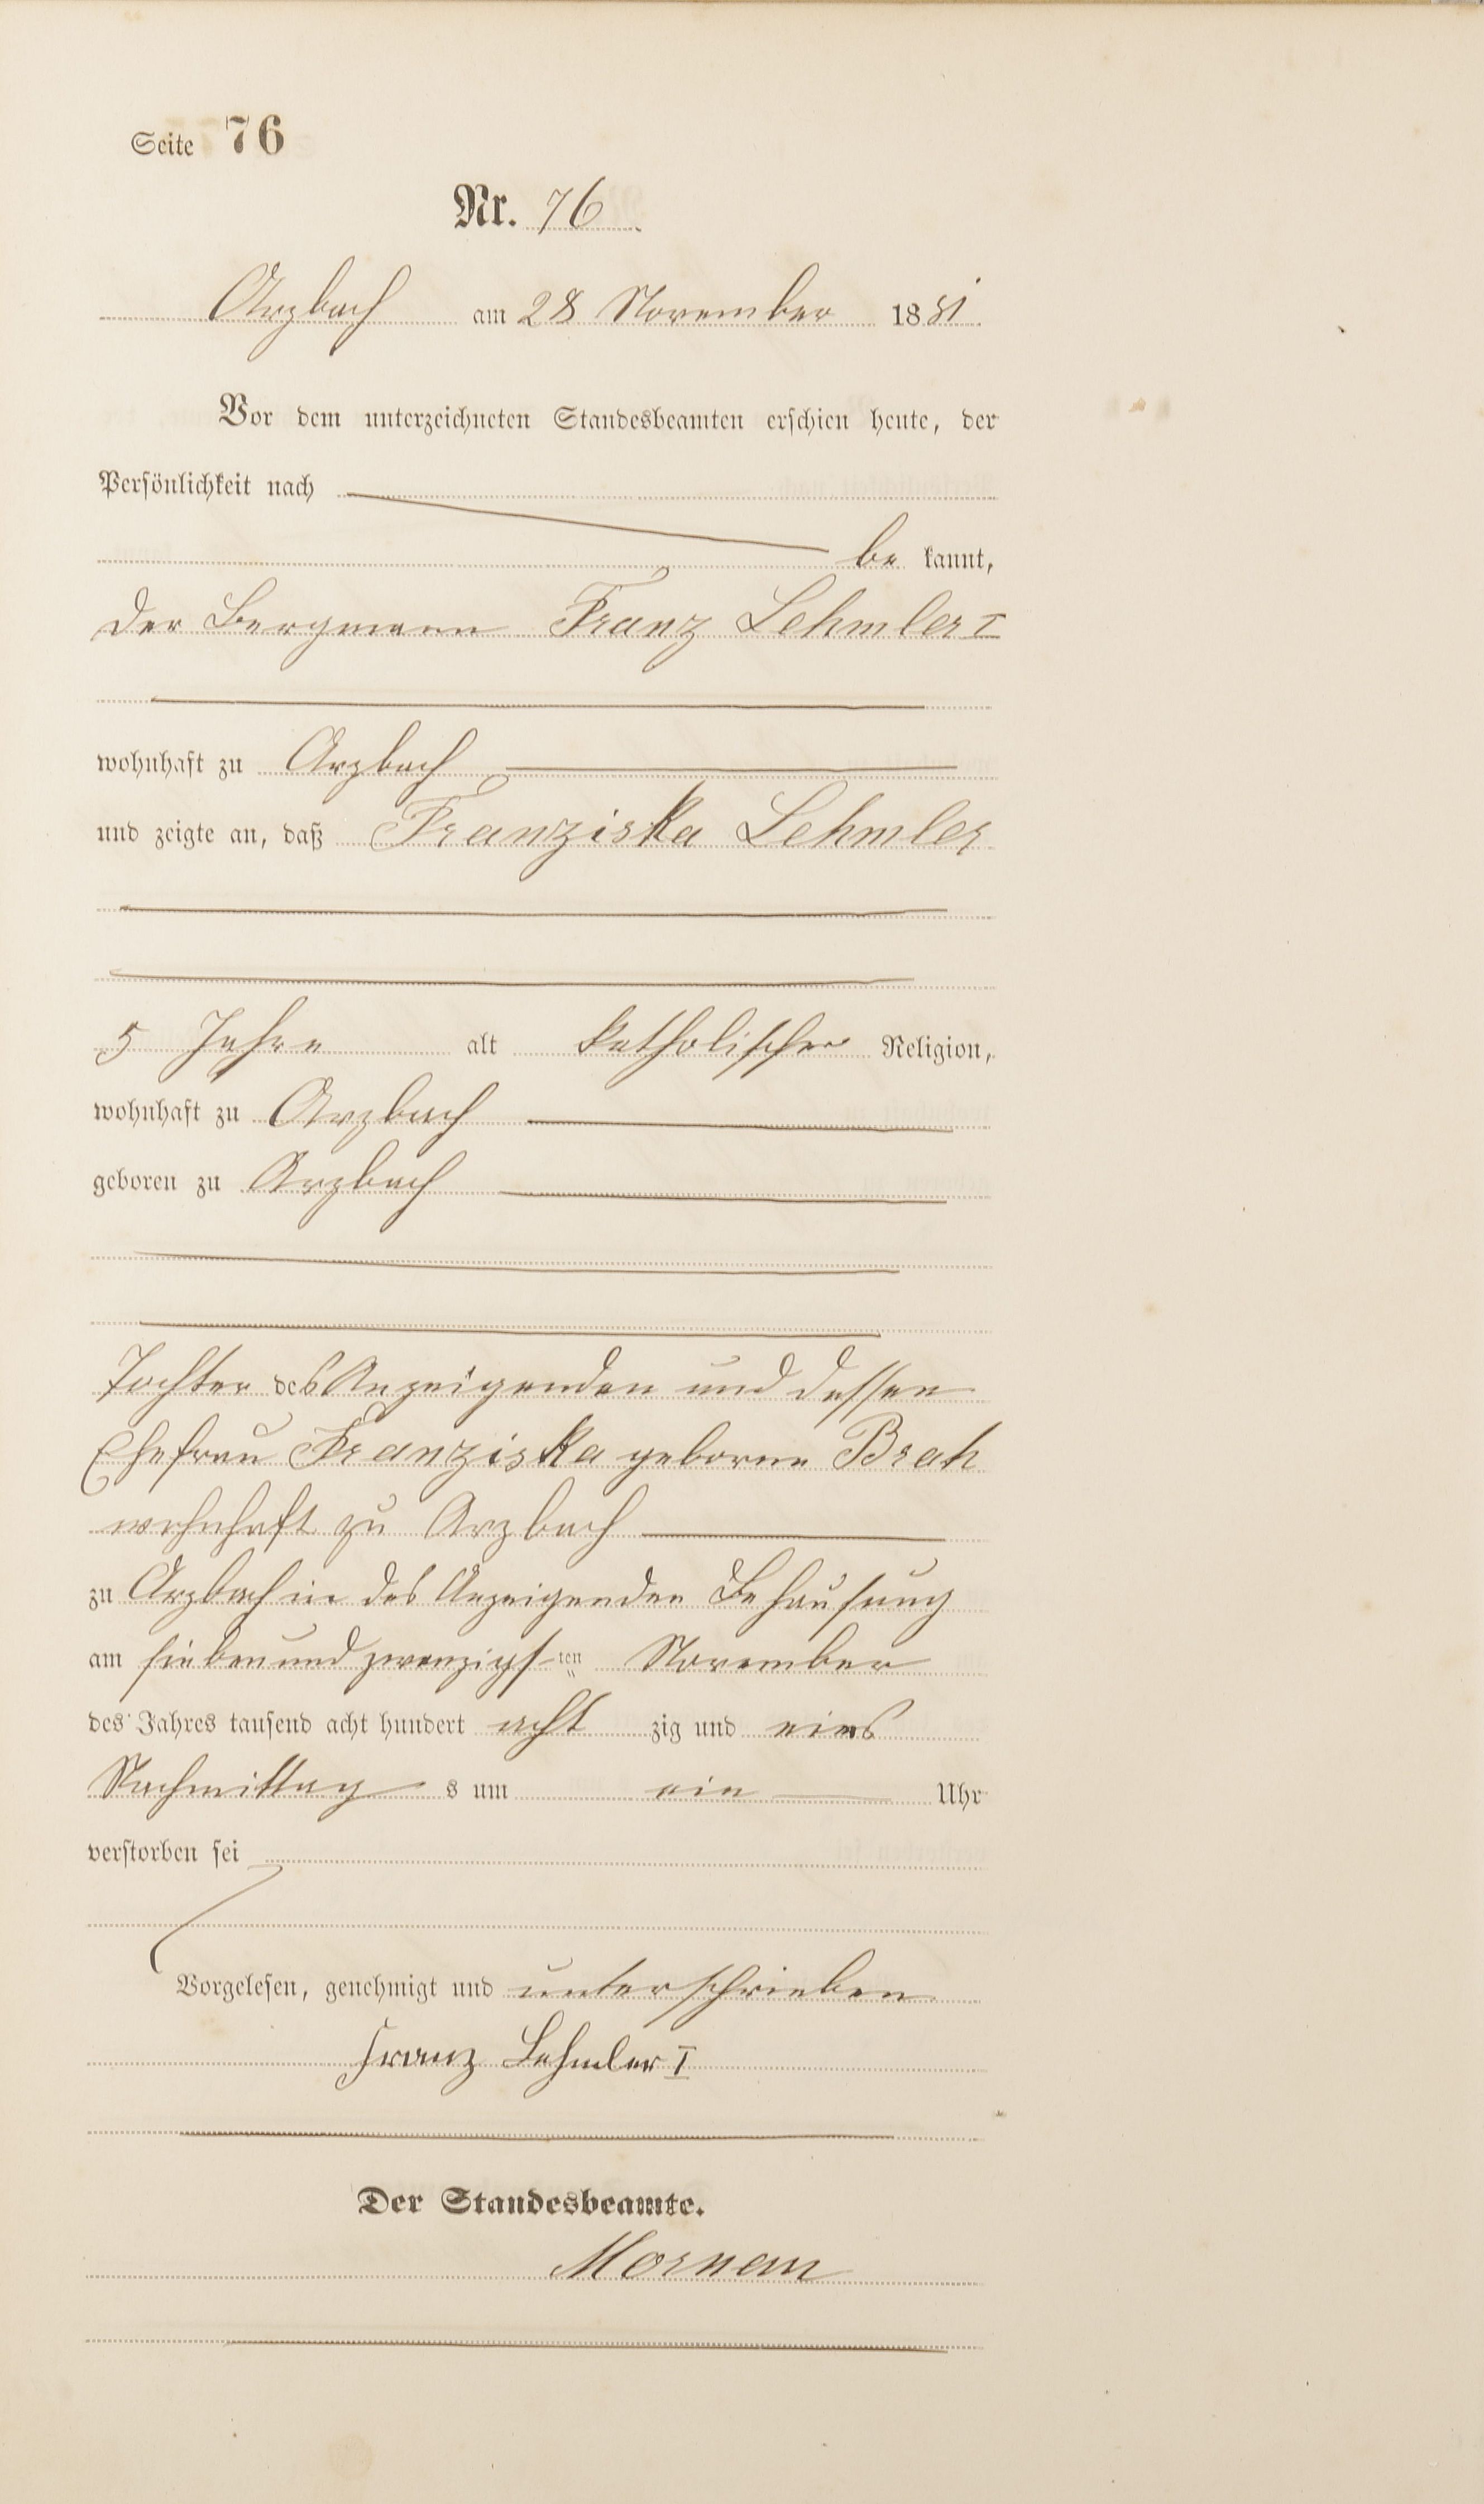 Seite 76
Nr. 76.
Arzbach am 28 November 1881.
Vor dem unterzeichneten Standesbeamten erschien heute, der
Persönlichkeit nach
be kannt,
der Bergmann Franz Lehmler I
wohnhaft zu Arzbach
und zeigte an, daß Franziska Lehmler
5 Jahre alt katholischer Religion,
wohnhaft zu Arzbach
geboren zu Arzbach
Tochter des Anzeigenden und dessen
Ehefrau Franziska geborne Brah
wohnhaft zu Arzbach
zu Arzbach in des Anzeigenden Behausung
am siebenundzwanzigs-ten November
des Jahres tausend acht hundert acht zig und eins
Nachmittag s um ein Uhr
verstorben sei
Vorgelesen, genehmigt und unterschrieben
Franz Lehmler I
Der Standesbeamte.